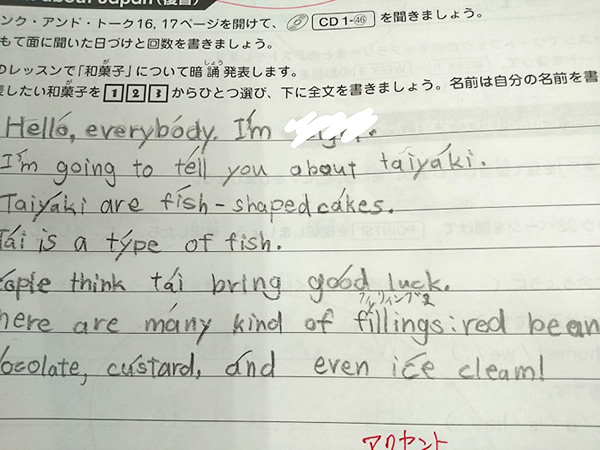 about Japan(復習)
ンク・アンド・トーク16, 17ページを開けて、 CD 1-46 を聞きましょう。
もて面に聞いた日づけと回数を書きましょう。
のレッスンで「和菓子」について暗誦発表します。
しょう
したい和菓子を 1 2 3 からひとつ選び、下に全文を書きましょう。名前は自分の名前を書
Hello, everybody. I'm
I'm going to tell you about taiyaki.
Taiyaki are fish-shaped cakes.
Tai is a type of fish.
eople think tai bring good luck.
フィリィングズ
here are many kind of fillings: red bean
ocolate, custard, and even ice cleam!
アクセント